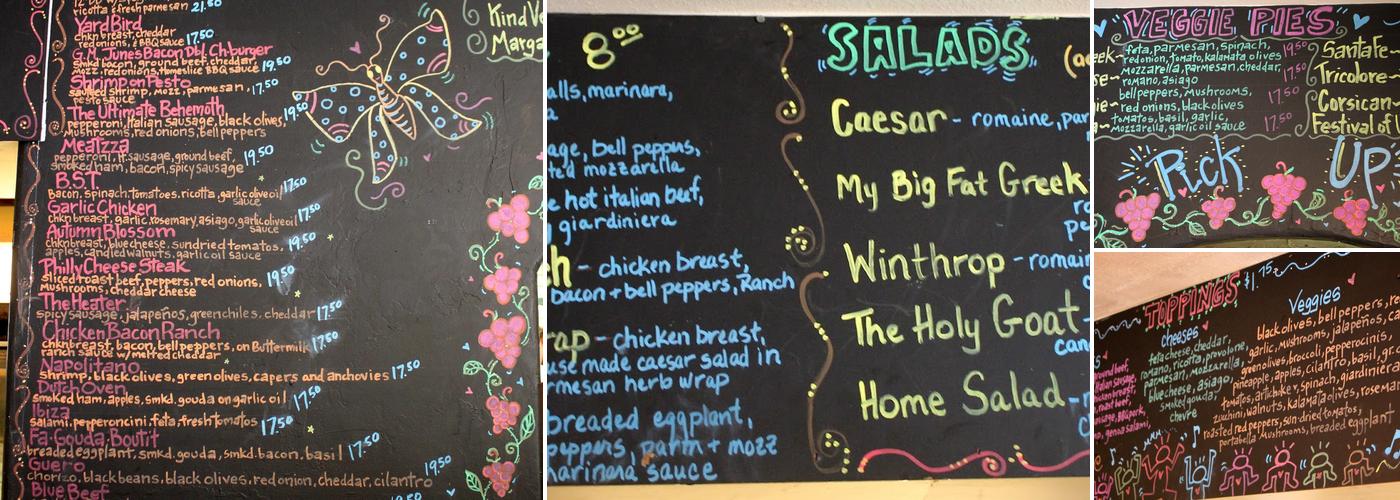 ricotta & fresh parmesan 21.50
Yard Bird
chkn breast, cheddar
red onions, & BBQ sauce 17.50
G.M. Junes Bacon Dbl. Ch-burger
smkd bacon, ground beef, cheddar,
mozz, red onions, homeslice BBQ sauce 19.50
Shrimp Pesto
sauteed shrimp, mozz, parmesan, 17.50
pesto sauce
The Ultimate Behemoth 19.50
pepperoni, italian sausage, black olives,
mushrooms, red onions, bell peppers
Meatzza
pepperoni, it. sausage, ground beef,
smoked ham, bacon, spicy sausage 19.50
B.S.T.
Bacon, spinach, tomatoes, ricotta, garlic olive oil 17.50
sauce
Garlic Chicken
chkn breast, garlic, rosemary, asiago, garlic olive oil 17.50
sauce
Autumn Blossom
chkn breast, blue cheese, sundried tomatoes, 19.50
apples, candied walnuts, garlic oil sauce
Philly Cheese Steak
sliced roast beef, peppers, red onions, 19.50
mushrooms, cheddar cheese
The Heater
spicy sausage, jalapeños, green chiles, cheddar 17.50
Chicken Bacon Ranch
chkn breast, bacon, bell peppers, on Buttermilk 17.50
ranch sauce w/ melted cheddar
Napolitano
shrimp, black olives, green olives, capers and anchovies 17.50
Dutch Oven
smoked ham, apples, smkd. gouda on garlic oil 17.50
Ibiza
salami, pepperoncini, feta, fresh tomatos 17.50
Fa-Gouda-Boutit
breaded eggplant, smkd. gouda, smkd. bacon, basil 17.50
Guero
chorizo, black beans, black olives, red onion, cheddar, cilantro 19.50
Blue Beef
Kind Ve
Marga
8.00
alls, marinara,
a
age, bell peppers,
ted mozzarella
e hot italian beef,
giardiniera
h - chicken breast,
bacon + bell peppers, Ranch
rap - chicken breast,
use made caesar salad in
rmesan herb wrap
breaded eggplant,
peppers, parm + mozz
marinara sauce
SALADS
(ac
Caesar - romaine, par
My Big Fat Greek
ro
pe
Winthrop - romain
The Holy Goat -
can
Home Salad -
VEGGIE PIES
eek - feta, parmesan, spinach, 19.50
red onion, tomato, kalamata olives
se - mozzarella, parmesan, cheddar 17.50
romano, asiago
bell peppers, mushrooms, 17.50
red onions, black olives
tomatos, basil, garlic, 17.50
mozzarella, garlic oil sauce
Santa Fe -
Tricolore -
Corsican -
Festival of
PicK UP
TOPPINGS $1.75
cheeses
feta cheese, cheddar,
romano, ricotta, provolone,
parmesan, mozzarella,
blue cheese, asiago,
smoked gouda,
chevre
round beef,
italian sausage,
chicken breast,
roast beef,
genoa salami,
Veggies
black olives, bell peppers,
garlic, mushrooms, jalapeños, ca
green olives, broccoli, pepperocinis,
pineapple, apples, cilantro, basil,
tomatos, artichoke, spinach, giardiniera
zucchini, walnuts, kalamata olives, rosem
roasted red peppers, sun-dried tomatos,
portabella mushrooms, breaded eggplant